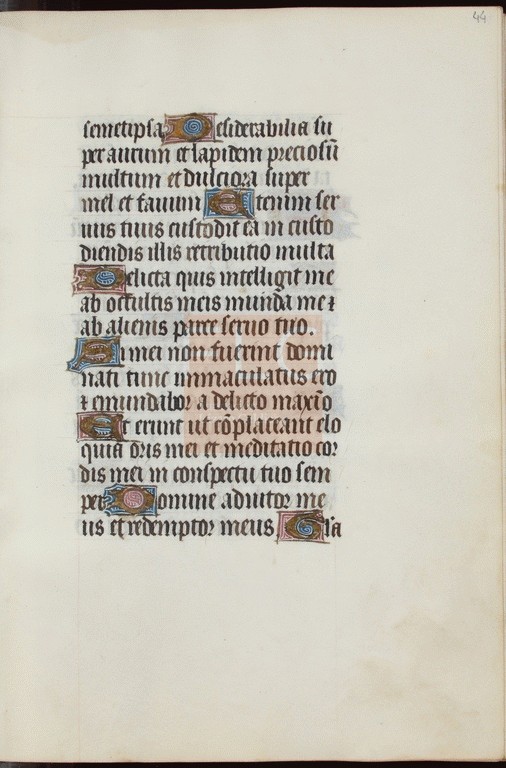 44
semetipsa Desiderabilia su
per aurum et lapidem preciosū
multum et dulciora super
mel et favum Etenim ser
uus tuus custodit ea in custo
diendis illis retributio multa
Delicta quis intelligit me
ab occultis meis munda me ⁊
ab alienis parce seruo tuo.
Si mei non fuerint domi
nati tunc immaculatus ero
⁊ emundabor a delicto maxīo
Et erunt ut cōplaceant elo
quia oris mei et meditatio cor
dis mei in conspectu tuo sem
per Domine adiutor me
us et redemptor meus Gl'a